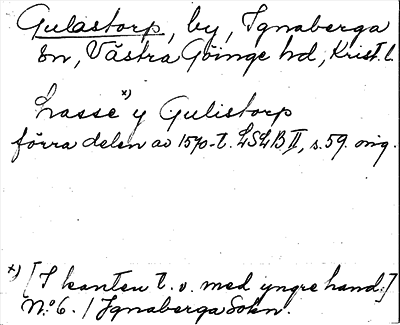 Gulastorp, by, Ignaberga
sn, Västra Göinge hd, Krist. l.
Lasse *) y Gulistorp
förra delen av 1570-t. LSLB II, s. 59. orig.
*) [I kanten t. v. med yngre hand:]
No 6. / Ignaberga Sokn.